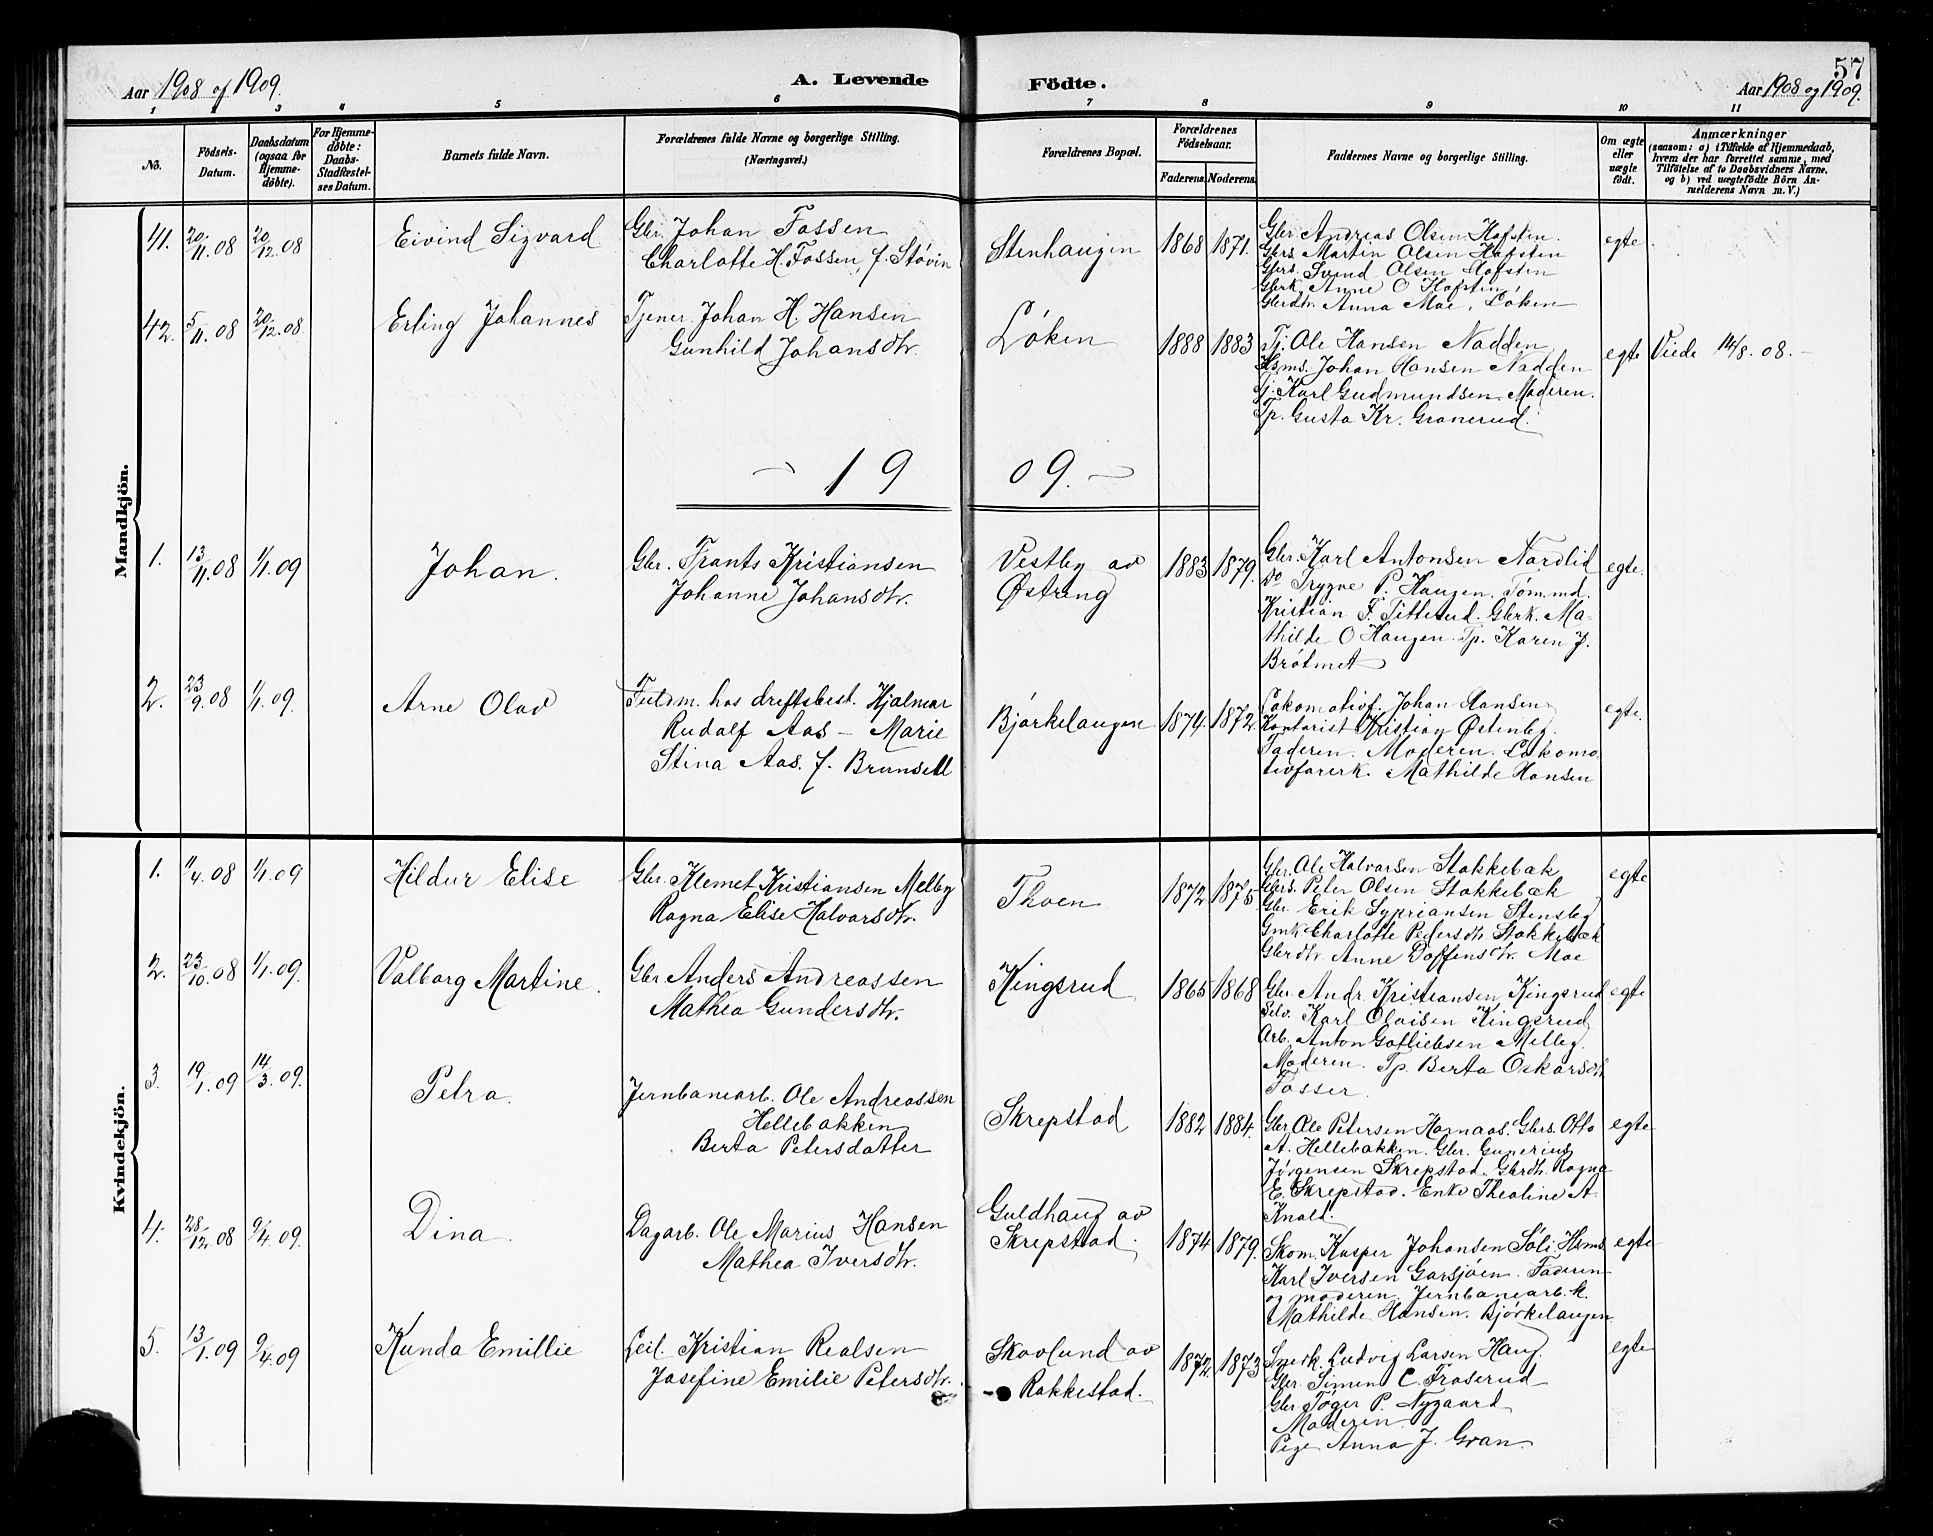 57
Aar 1908 og 1909.
A. Levende Födte.
Aar 1908 og 1909.
1 2 3 4 5 6 7 8 9 10 11
No.
Födsels-Datum.
Daabsdatum (ogsaa for Hjemme-döbte).
For Hjemme-döbte: Daabs-Stadfæstel-ses Datum.
Barnets fulde Navn.
Forældrenes fulde Navne og borgerlige Stilling. (Næringsvei.)
Forældrenes Bopæl.
Forældrenes Födselsaar.
Faderens. Moderens.
Faddernes Navne og borgerlige Stilling.
Om ægte eller uægte födt.
Anmærkninger
(saasom: a) i Tilfælde af Hjemmedaab, hvem der har forrettet samme, med Tilföielse af to Daabsvidners Navne, og b) ved uægtefödte Börn An-melderens Navn m. V.)
Mandkjön.
41. 20/11.08 20/12.08 Eivind Sigvard
Gbr. Johan Fossen
Charlotte H. Fossen, f. Støvin
Stenhaugen 1868 1871.
Gbr Andreas Olsen Hofsten.
Gbrs. Martin Olsen Hofsten
Gbrs. Svend Olsen Hofsten
Gbrk. Anne O Hofsten
Gbrdtr. Anna Moe, Løken
egte.
42. 5/11.08 20/12.08 Erling Johannes
Tjener Johan H. Hansen
Gunhild Johansdtr.
Løken 1888 1883
Tj. Ole Hansen Nadden
Hsms. Johan Hansen Nadden
Tj. Karl Gudmundsen. Moderen.
Tp. Gusta Kr. Granerud.
egte Viede 14/8. 08. -
- 19 09. -
1. 13/11.08 1/1.09 Johan.
Gbr. Frants Kristiansen
Johanne Johansdtr.
Vestby av
Østreng
1883 1879.
Gbr. Karl Antonsen Nordlid
Do Trygve P. Haugen. Tøm.md.
Kristian F. Titterud. Gbrk. Ma-
thilde O Haugen. Tp. Karen J.
Bråtmet
egte.
2. 23/9.08 1/1.09. Arne Olav
Fuldm. hos driftsbest. Hjalmar
Rudolf Aas - Marie
Stina Aas. f. Brunsell
Bjørkelangen 1874. 1872.
Lokomotivf. Johan Hansen
Kontorist Kristian Østenby.
Faderen. Moderen. Lokomo-
tivførerk. Mathilde Hansen
egte.
Kvindekjön.
1. 11/4.08 1/1.09 Hildur Elise
Gbr. Klemet Kristiansen Melby
Ragna Elise Halvorsdtr.
Thoen 1872 1875
Gbr. Ole Halvorsen Stokkebæk
Gbrs. Peter Olsen Stokkebæk
Gbr. Erik Sypriansen Stensby
Gmk Charlotte Pedersdtr Stokkebæk
Gbrdtr. Anne Doffensdtr. Moe
egte
2. 23/10.08 1/1.09. Valborg Martine.
Gbr Anders Andreassen
Mathea Gundersdtr.
Kingsrud 1865 1868
Gbr. Andr. Kristiansen Kingsrud
Selv. Karl Olaisen Kingsrud
Arb. Anton Gotliebsen Melby.
Moderen. Tp. Berta Oskarsdtr
Fosser.
egte
3. 19/1.09 14/3.09. Petra.
Jernbanearb. Ole Andreassen
Hellebakken
Berta Petersdatter
Skrepstad 1882 1884.
Gbr. Ole Petersen Hornaas. Gbrs. Otto
A. Hellebakken. Gbr. Gunerius
Jørgensen Skrepstad. Gbrdtr. Ragna
E. Skrepstad. Enke Theoline A.
Knold.
egte
4. 28/12.08 9/4.09. Dina.
Dagarb. Ole Marius Hansen
Mathea Iversdtr.
Guldhaug av
Skrepstad.
1874 1879.
Skom. Kasper Johansen Søli. Hsms.
Karl Iversen Garsjøen. Faderen
og moderen. Jernbanearb. k.
Mathilde Hansen. Bjørkelangen
egte
5. 13/1.09 9/4.09 Kunda Emillie
Leil. Kristian Realsen
Josefine Emilie Petersdtr.
Skovlund av
Rakkestad.
1872. 1873
Snedk. Ludvig Larsen Haug.
Gbr. Simen C. Froserud
Gbr. Tøger P. Nygaard
Moderen.
Pige Anna J. Gran.
egte